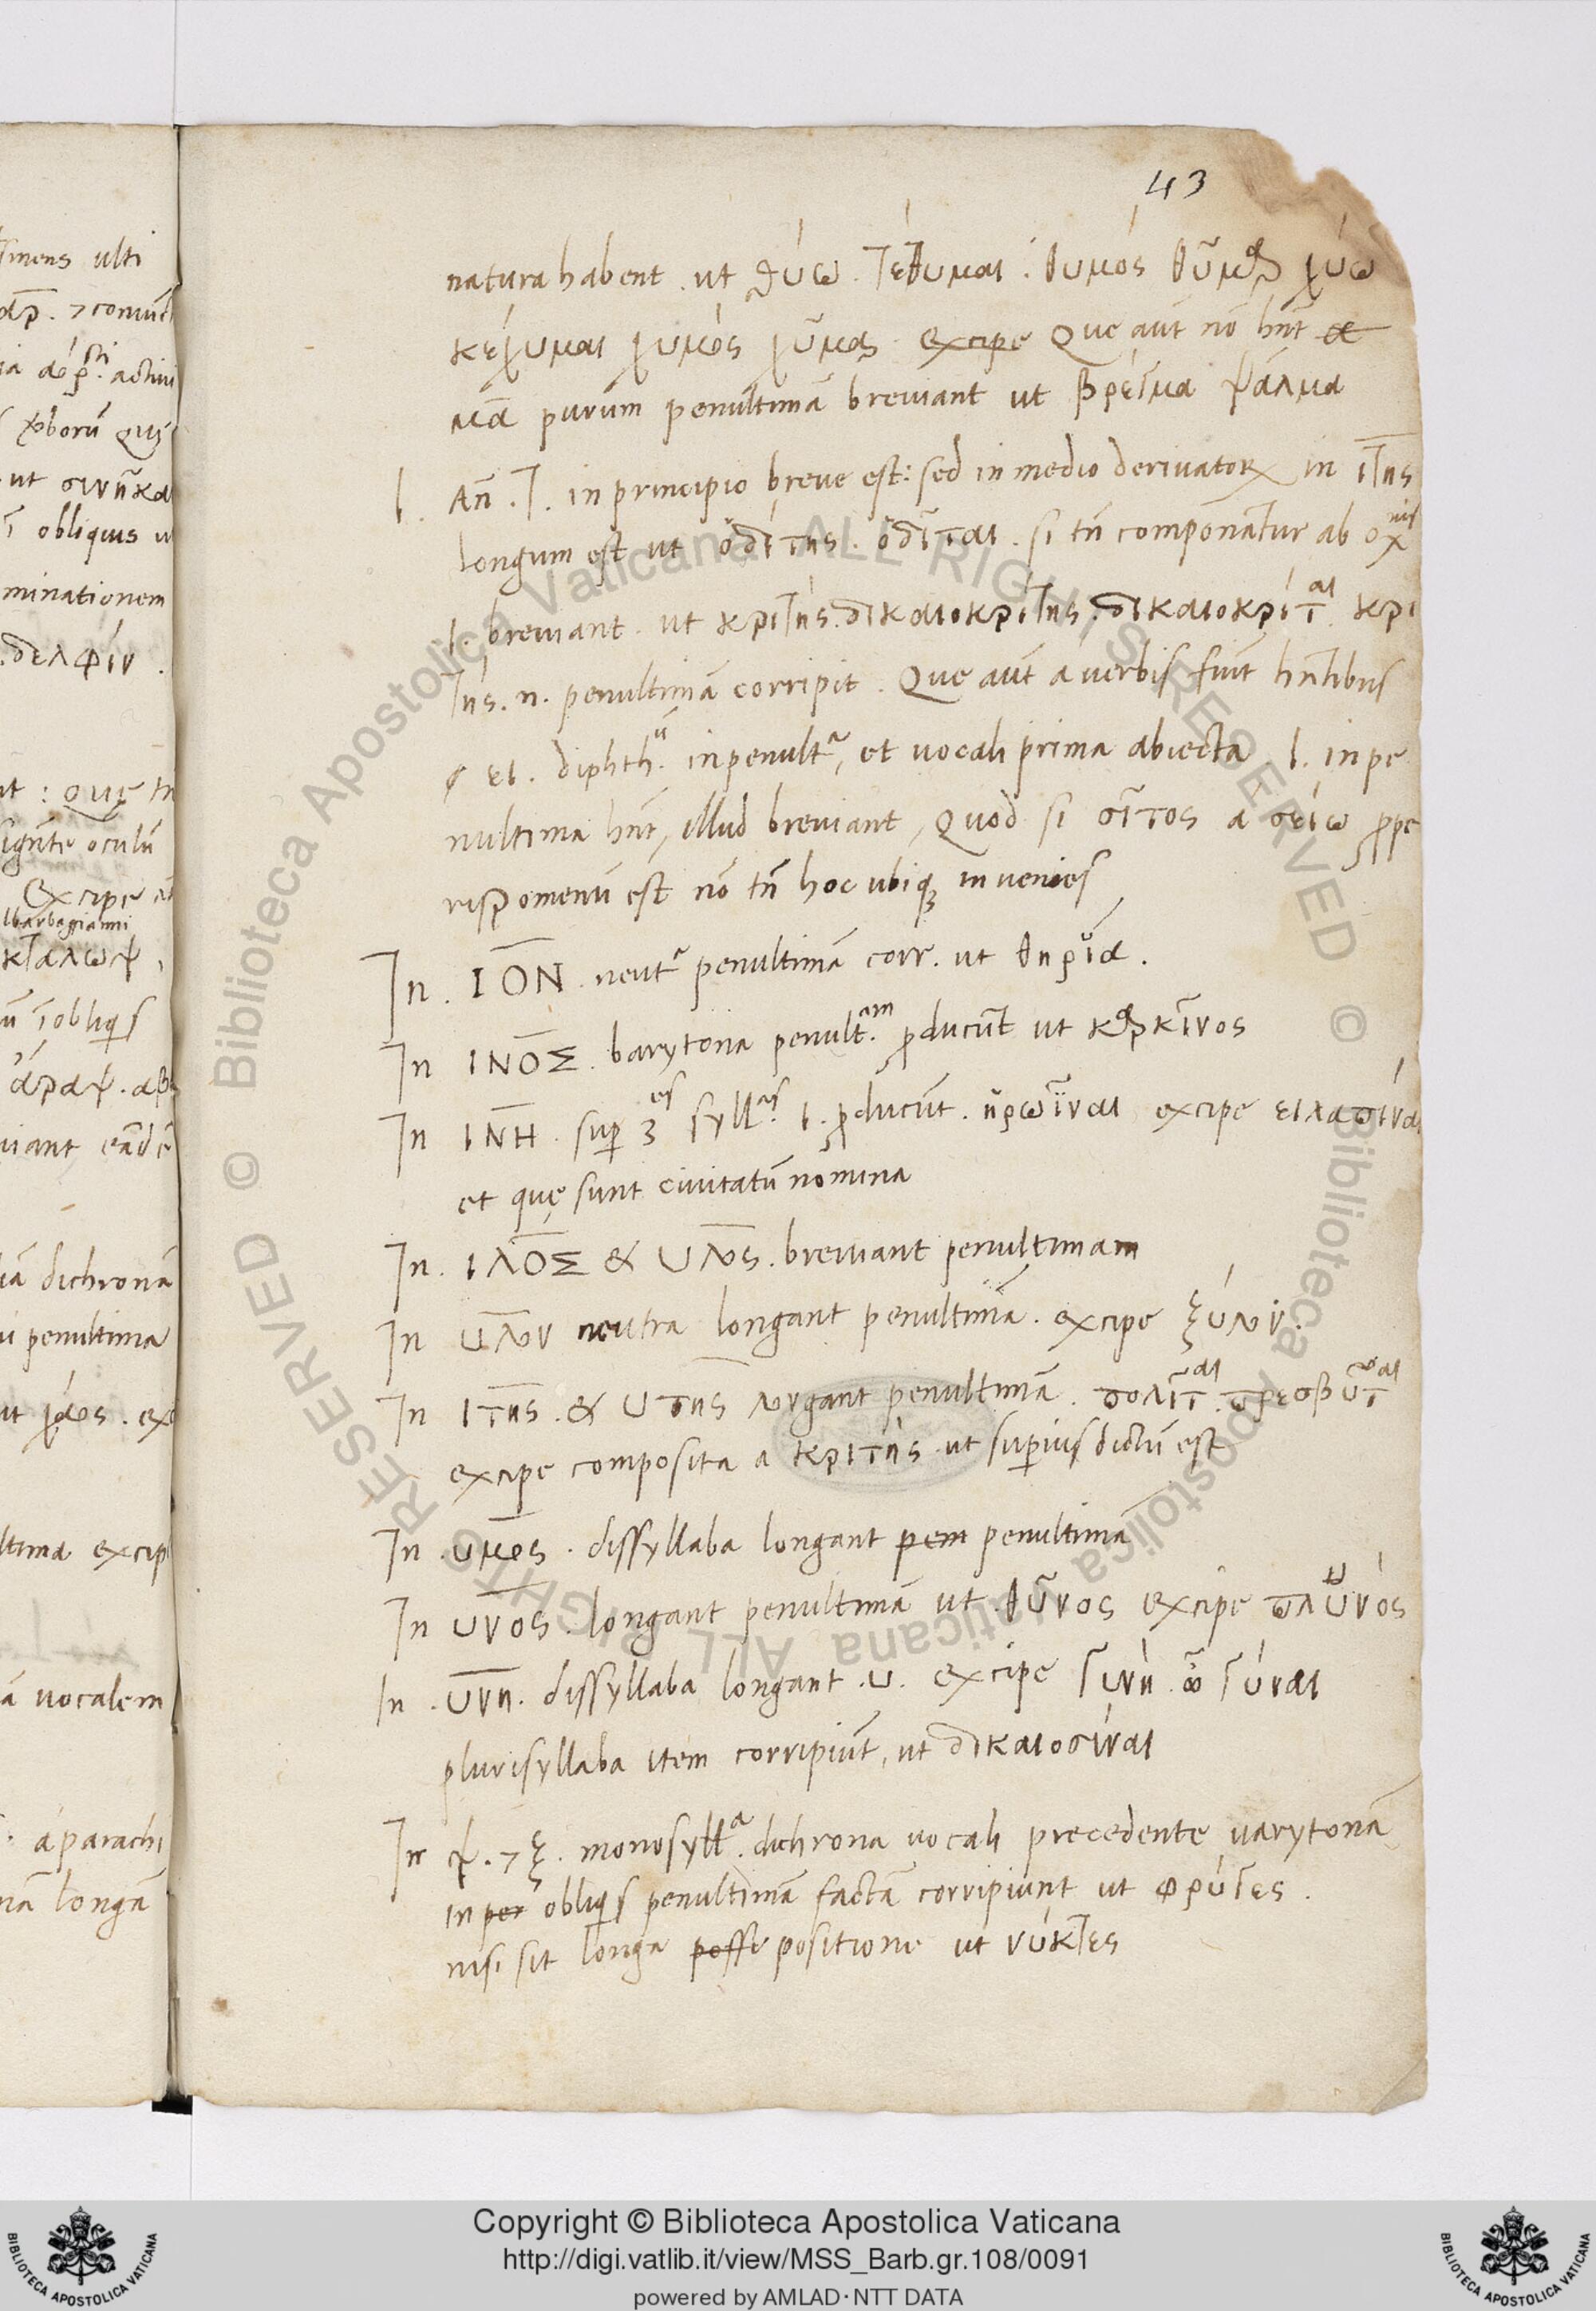 43
natura habent . ut θύω . τέθυμαι . θυμός θῦμα χύω
κέχυμαι χυμός χῦμα excipe Que aūt nō hn̄t α
μα purum penultimā breviant ut βρέγμα ψάλμα
Ι . Añ . τ . in principio breve est : sed in medio derivatorꝝ in ιτης
longum est ut ὁδίτης . ὁδῖται . si tn̄ componantur ab οχ
ι . breviant . ut κριτής . δικαιοκρίτης . δικαιοκρίται . κρι
της . n . penultimā corripit . Que aūt a verbis fiūt hn̄tibus
ει . diphth . in penultᵃ, et vocali prima abiecta . ι . in pe
nultima hn̄t, illud breviant, Quod si σῖτος a σείω prope
rispomenū est nō tn̄ hoc ubiqꝫ invenies
In . ΙΟΝ . neutᵃ penultimā corr . ut θηρία .
In ΙΝΟΣ . barytona penult.ᵃᵐ producūt ut καρκῖνος
In ΙΝΗ . sup 3ᵉˢ syllᵃˢ . ι . producūt . ἡρωῖναι excipe ειλαπίναι
et quę sunt civitatū nomina
In . ΙΛΟΣ & υλος . breviant penultimam
In υλον neutra longant penultimā . excipe ξύλον .
In ιτης . & υτης longant penultimā . πολῖται . πρεσβῦται
excipe composita a κριτής . ut superius dictū est
In . υμος . dissyllaba longant pem penultimā
In υνος . longant penultimā ut . θῦνος excipe πλυνός
In . υνη . dissyllaba longant . υ . excipe γυνή ὦ γύναι
plurisyllaba item corripiūt, ut δικαιοσύναι
In ψ . 7 ξ . monosyllᵃ . dichrona vocali precedente varytonā
in per obliqis penultimā factā corripiunt ut φρύγες .
nisi sit longa posse positione ut νύκτες
Copyright © Biblioteca Apostolica Vaticana
http://digi.vatlib.it/view/MSS_Barb.gr.108/0091
powered by AMLAD·NTT DATA